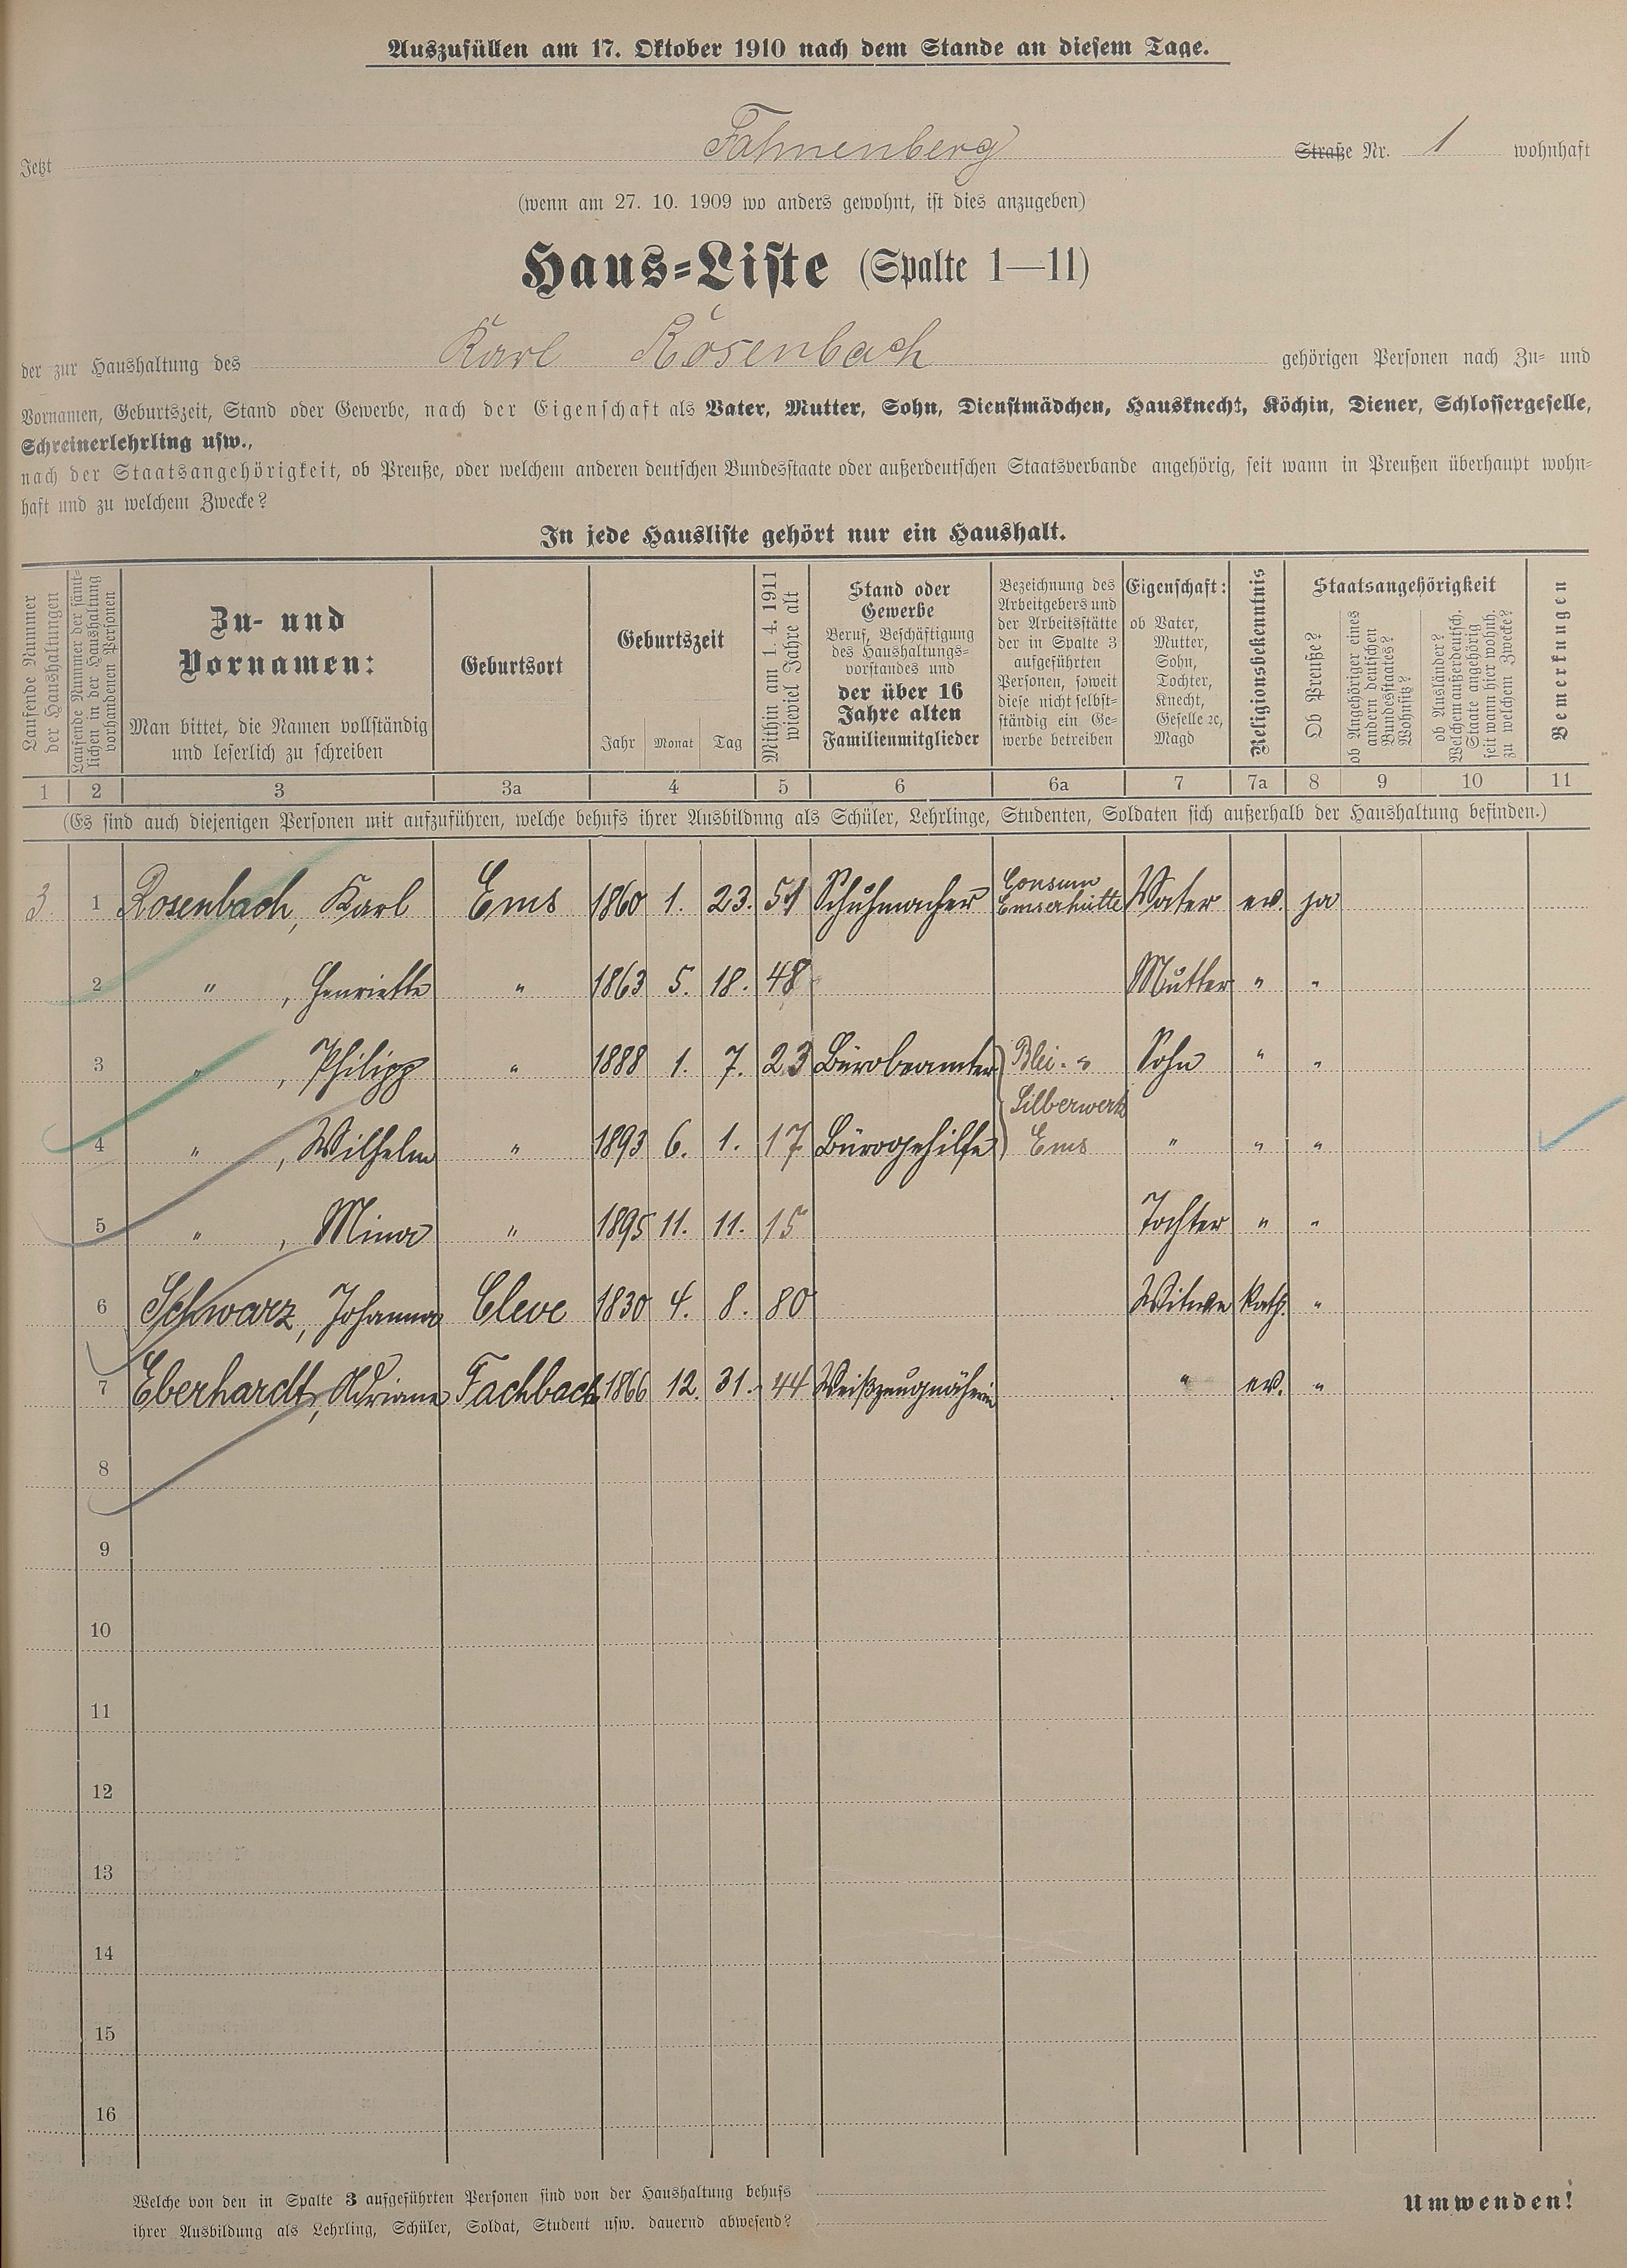 Auszufüllen am 17. Oktober 1910 nach dem Stande an diesem Tage.
Jetzt Fahnenberg Straße Nr. 1 wohnhaft
(wenn am 27. 10. 1909 wo anders gewohnt, ist dies anzugeben)
Haus-Liste (Spalte 1—11)
der zur Haushaltung des Karl Rosenbach gehörigen Personen nach Zu- und
Vornamen, Geburtszeit, Stand oder Gewerbe, nach der Eigenschaft als Vater, Mutter, Sohn, Dienstmädchen, Hausknecht, Köchin, Diener, Schlossergeselle,
Schreinerlehrling usw.,
nach der Staatsangehörigkeit, ob Preuße, oder welchem anderen deutschen Bundesstaate oder außerdeutschen Staatsverbande angehörig, seit wann in Preußen überhaupt wohn-
haft und zu welchem Zwecke?
In jede Hausliste gehört nur ein Haushalt.
Laufende Nummer
der Haushaltungen
Laufende Nummer der sämt-
lichen in der Haushaltung
vorhandenen Personen
Zu- und
Vornamen:
Man bittet, die Namen vollständig
und leserlich zu schreiben
Geburtsort
Geburtszeit
Jahr Monat Tag
Mithin am 1. 4. 1911
wieviel Jahre alt
Stand oder
Gewerbe
Beruf, Beschäftigung
des Haushaltungs-
vorstandes und
der über 16
Jahre alten
Familienmitglieder
Bezeichnung des
Arbeitgebers und
der Arbeitsstätte
der in Spalte 3
aufgeführten
Personen, soweit
diese nicht selbst-
ständig ein Ge-
werbe betreiben
Eigenschaft:
ob Vater,
Mutter,
Sohn,
Tochter,
Knecht,
Geselle ec,
Magd
Religionsbekenntnis
Staatsangehörigkeit
Ob Preuße?
ob Angehöriger eines
andern deutschen
Bundesstaates?
Wohnsitz?
ob Ausländer?
Welchem außerdeutsch.
Staate angehörig
seit wann hier wohnh.
zu welchem Zwecke?
Bemerkungen
1 2 3 3a 4 5 6 6a 7 7a 8 9 10 11
(Es sind auch diejenigen Personen mit aufzuführen, welche behufs ihrer Ausbildung als Schüler, Lehrlinge, Studenten, Soldaten sich außerhalb der Haushaltung befinden.)
3. 1 Rosenbach, Karl Ems 1860 1. 23. 51 Schuhmacher Consum Emserhütte Vater ev. ja
2 " , Henriette " 1863 5. 18. 48 Mutter " "
3 " , Philipp " 1888 1. 7. 23 Bürobeamter Blei- u Sohn " "
Silberwerk
4 " , Wilhelm " 1893 6. 1. 17 Bürogehilfe Ems " " "
5 " , Mina " 1895 11. 11. 15 Tochter " "
6 Schwarz, Johanna Cleve 1830 4. 8. 80 Witwe kath. "
7 Eberhardt, Adriane Fachbach 1866 12. 31. 44 Weißzeugnäherin " ev. "
8
9
10
11
12
13
14
15
16
Welche von den in Spalte 3 aufgeführten Personen sind von der Haushaltung behufs
ihrer Ausbildung als Lehrling, Schüler, Soldat, Student usw. dauernd abwesend?
Umwenden!